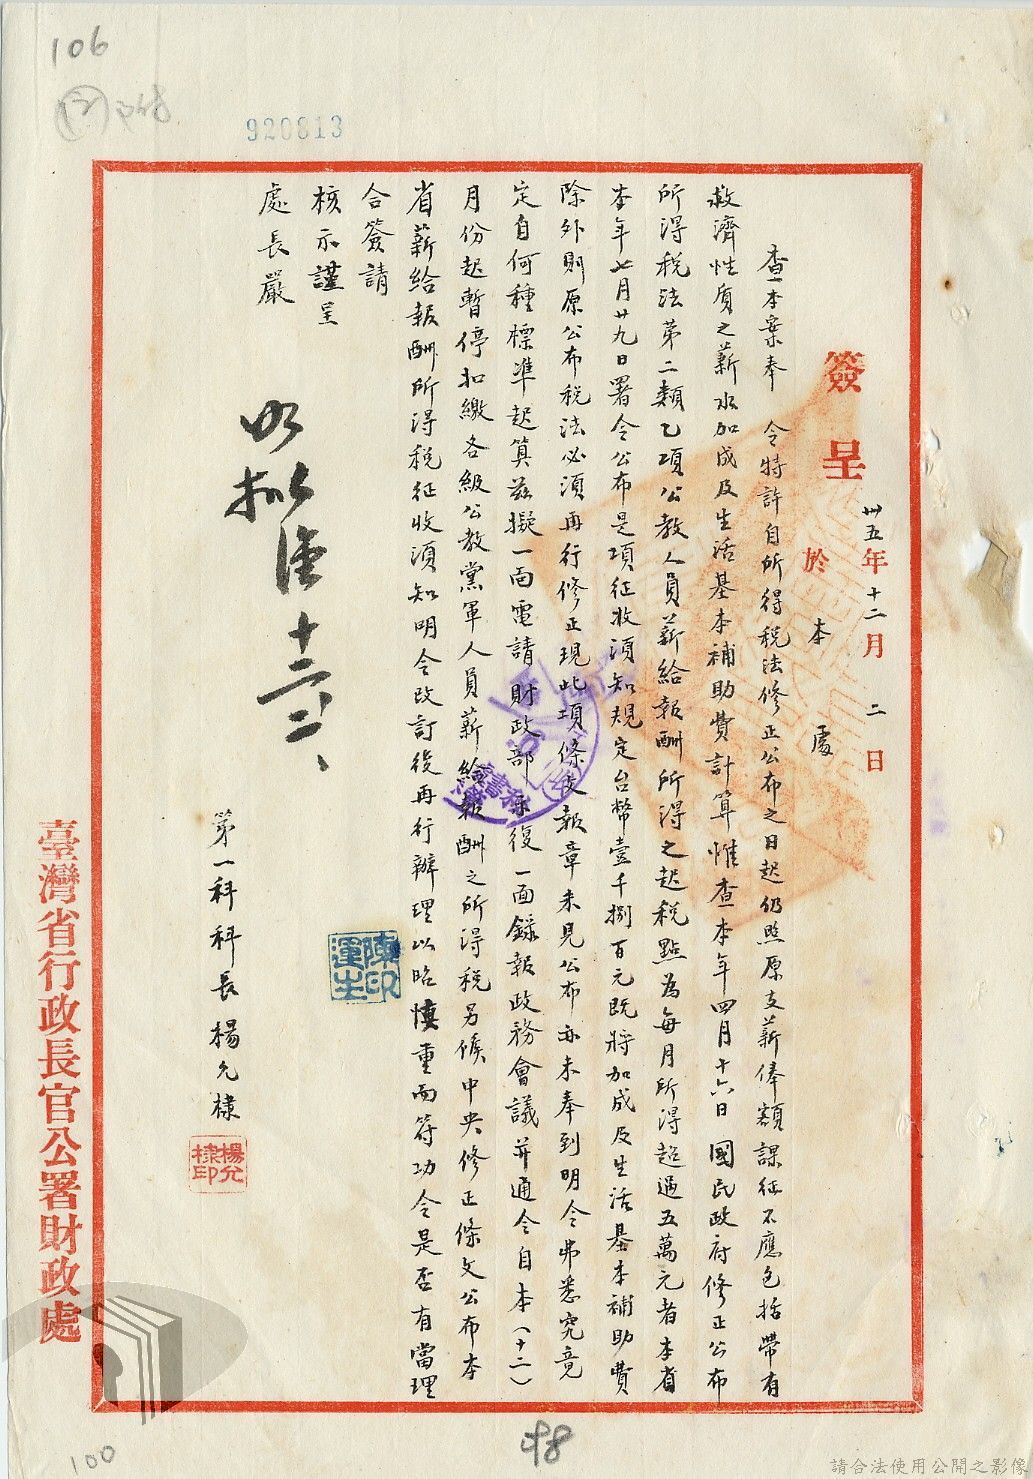 106
920813
簽呈
卅五年十二月二日
於本處
查本案奉　令特許自所得稅法修正公布之日起仍照原支薪俸額課征不應包括帶有
救濟性质之薪水加成及生活基本補助費計算惟查本年四月十六日國民政府修正公布
所得稅法第二類乙項公教人員薪給報酬所得之起稅點為每月所得超過五萬元者本省
本年七月廿九日署令公布是項征收須知規定台幣壹千捌百元既將加成及生活基本補助費
除外則原公布稅法必須再行修正現此項條文報章未見公布亦未奉到明令弗悉究竟
定自何種標準起算茲擬一面電請財政部示復一面錄報政務會議并通令自本（十二）
月份起暫停扣繳各級公教黨軍人員薪給報酬之所得稅另候中央修正條文公布本
省薪給報酬所得稅征收須知明令改訂後再行辦理以昭慎重而符功令是否有當理
合簽請
核示謹呈
處長嚴
如擬
十二、二、
第一科科長楊允棣
楊允棣印
陳運生印
臺灣省行政長官公署財政處
98
100
請合法使用公開之影像